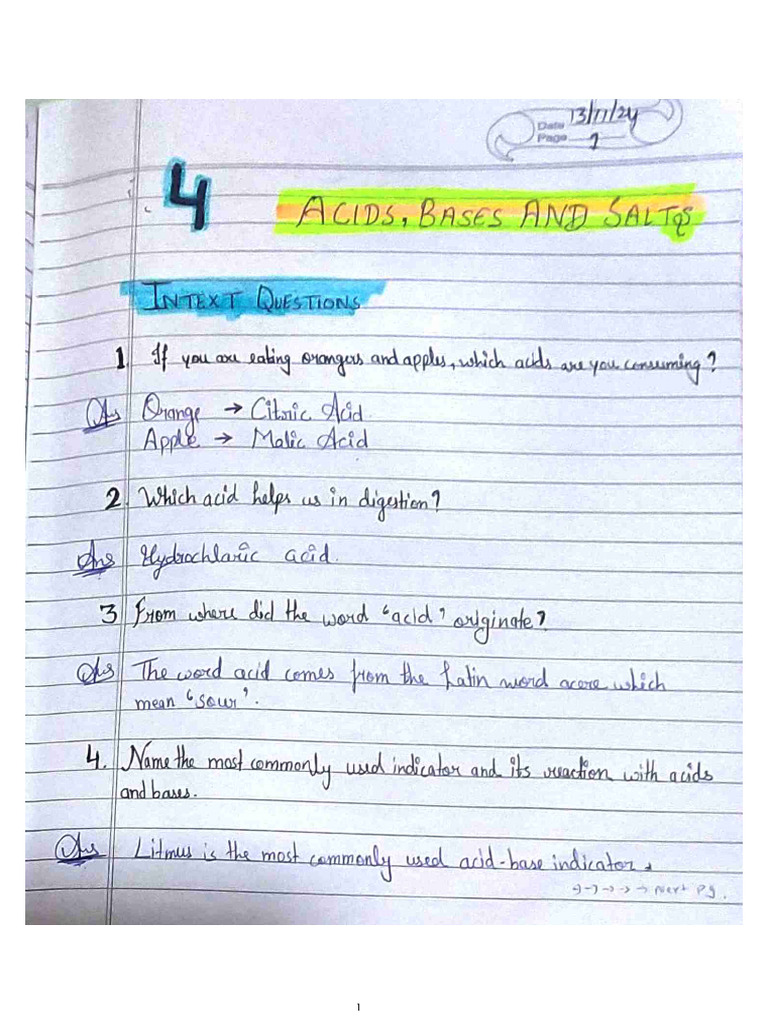 13/11/24
Date
Page 1
4 ACIDS, BASES AND SALTS
INTEXT QUESTIONS
1. If you are eating orangers and apples, which acids are you consuming?
Ans Orange → Citric Acid.
Apple → Malic Acid
2. Which acid helps us in digestion?
Ans Hydrochloric acid.
3 From where did the word "acid" originate?
Ans The word acid comes from the Latin word acere which
mean "sour".
4. Name the most commonly used indicator and its reaction with acids
and bases.
Ans Litmus is the most commonly used acid-base indicator.
→→→→→ Next Pg.
1